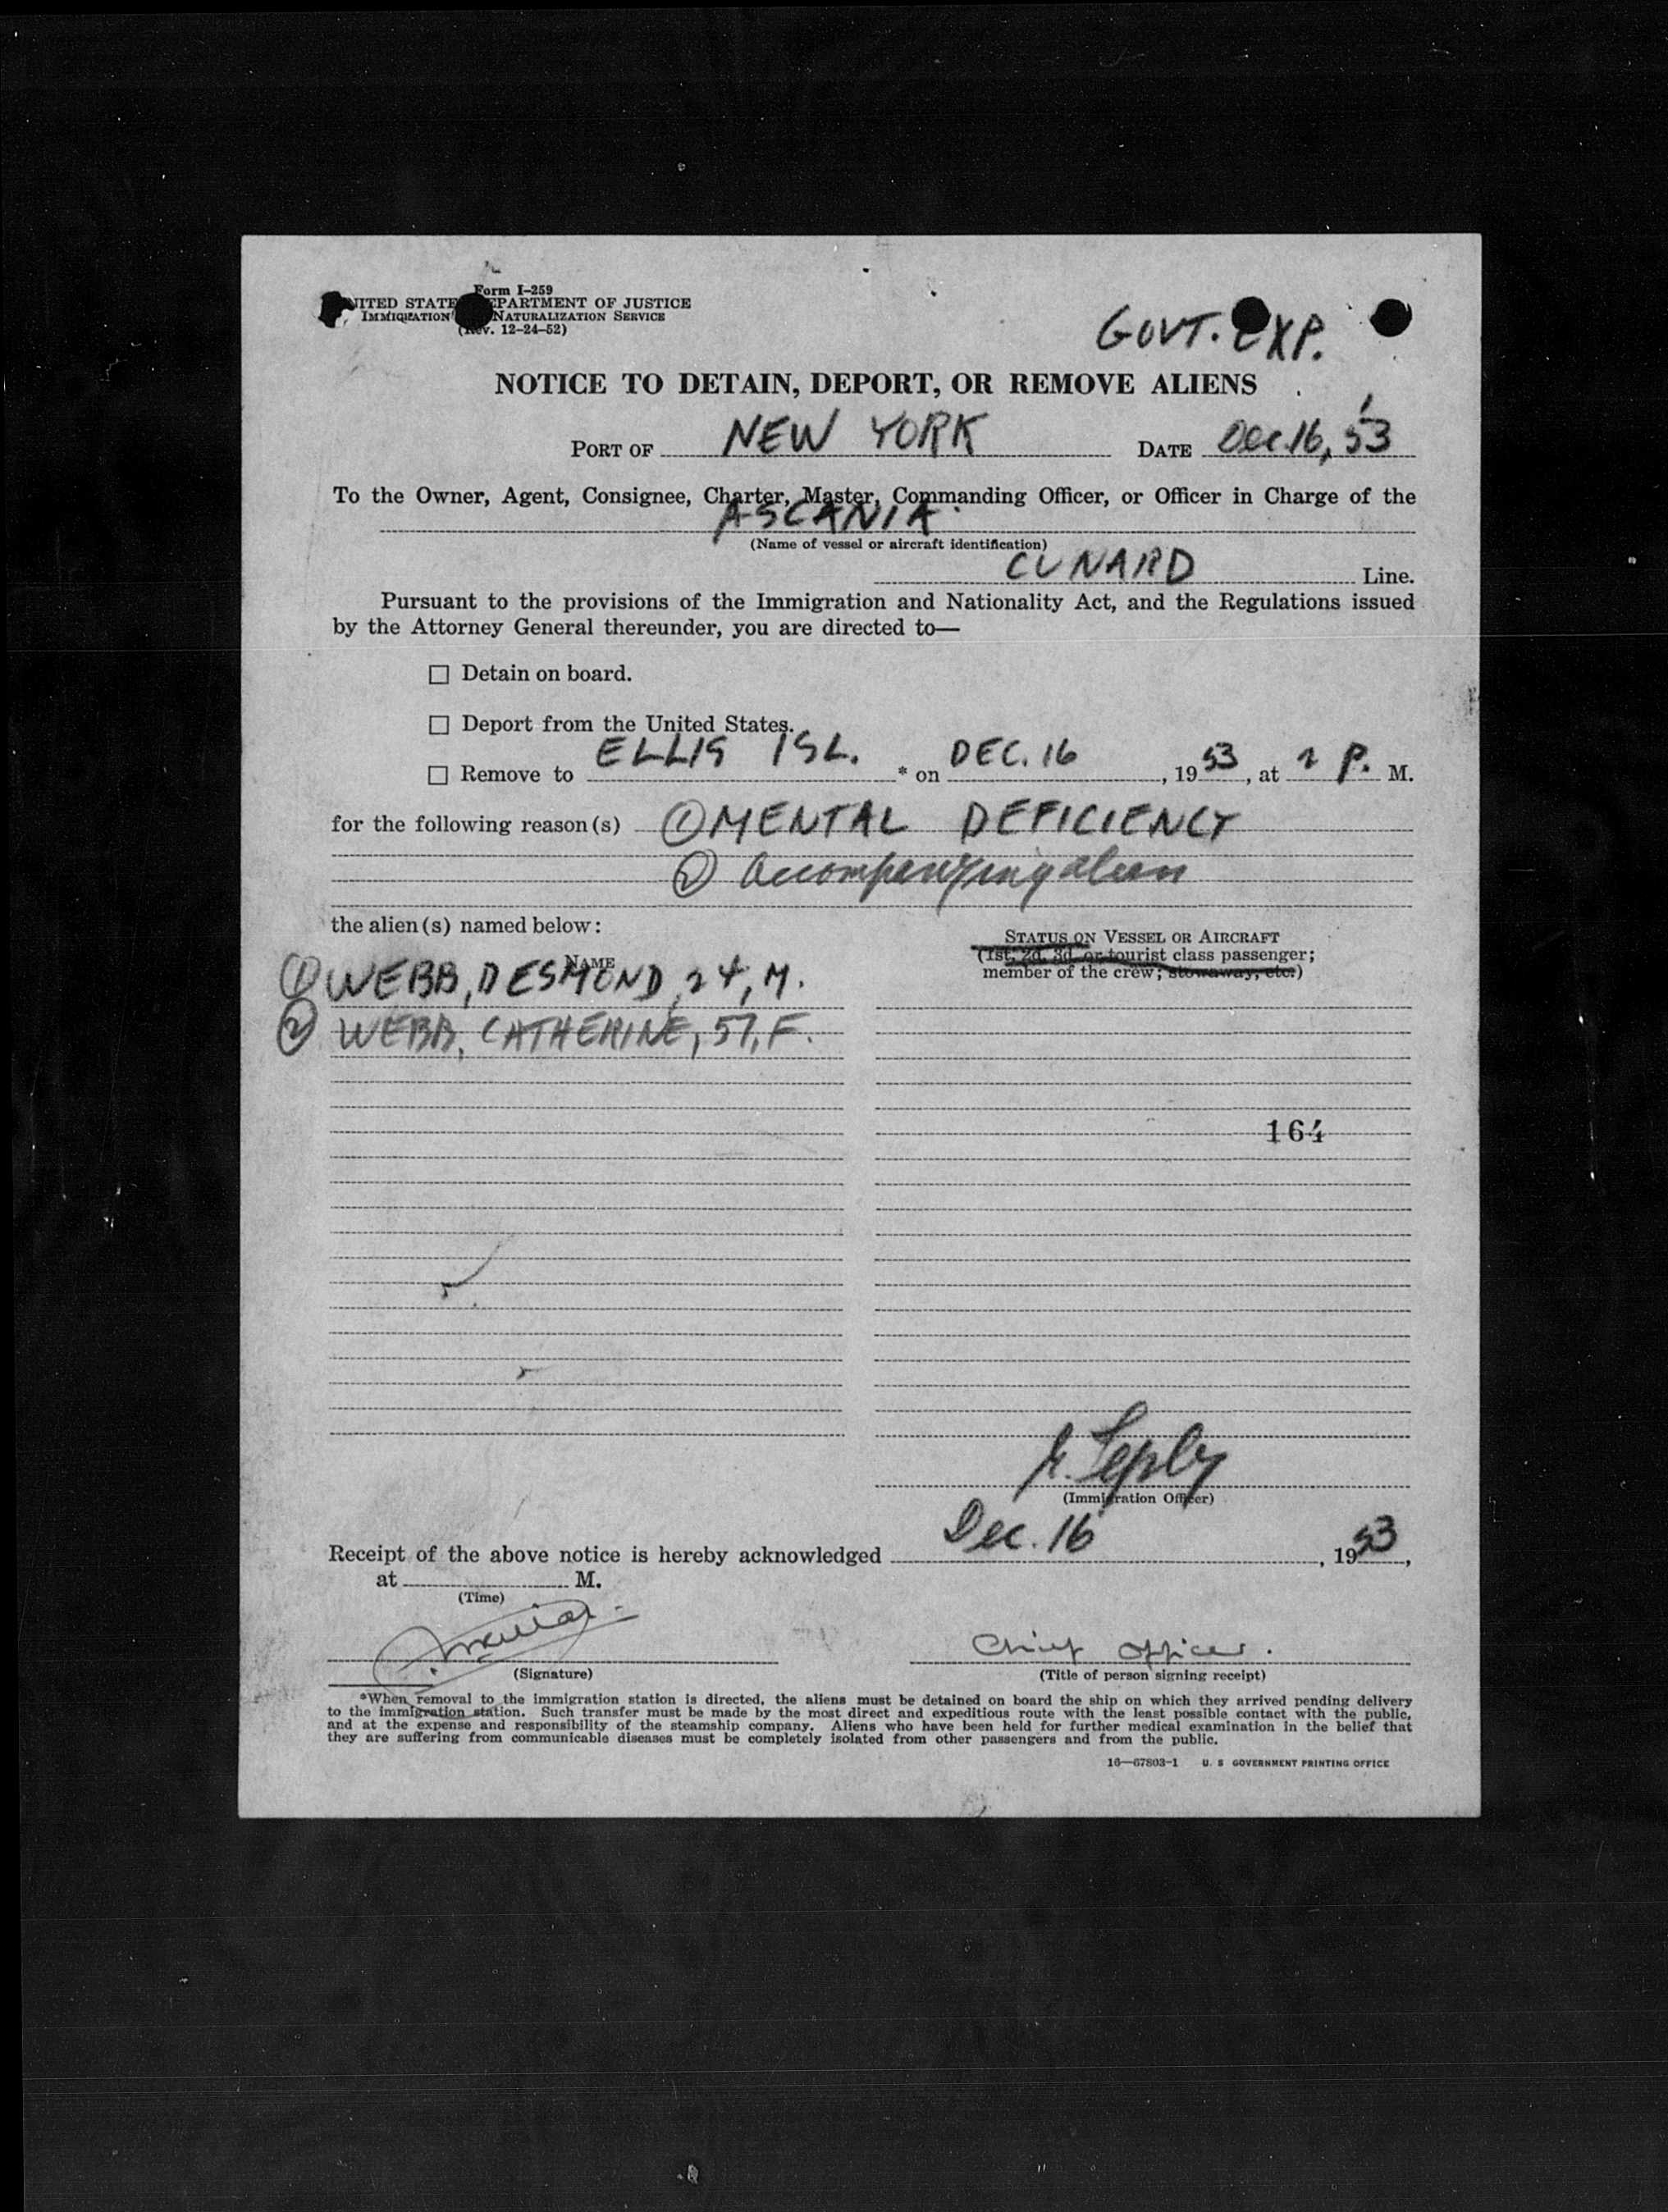 Form I-259
UNITED STATE EPARTMENT OF JUSTICE
IMMIGRATION NATURALIZATION SERVICE
(Rev. 12-24-52)
GOVT. EXP.
NOTICE TO DETAIN, DEPORT, OR REMOVE ALIENS
PORT OF NEW YORK DATE Dec. 16, '53
To the Owner, Agent, Consignee, Charter, Master, Commanding Officer, or Officer in Charge of the
ASCANIA
(Name of vessel or aircraft identification)
CUNARD Line.
Pursuant to the provisions of the Immigration and Nationality Act, and the Regulations issued
by the Attorney General thereunder, you are directed to—
☐ Detain on board.
☐ Deport from the United States.
☐ Remove to ELLIS ISL. * on DEC. 16, 1953, at 2 P. M.
for the following reason(s) ① MENTAL DEFICIENCY
② Accompanying alien
the alien(s) named below:
STATUS ON VESSEL OR AIRCRAFT
NAME (1st, 2d, 3d, or tourist class passenger;
member of the crew; stowaway, etc.)
① WEBB, DESMOND, 24, M.
② WEBB, CATHERINE, 57, F.
164
(Immigration Officer)
Receipt of the above notice is hereby acknowledged Dec. 16, 1953,
at M.
(Time)
Chief Officer.
(Signature) (Title of person signing receipt)
*When removal to the immigration station is directed, the aliens must be detained on board the ship on which they arrived pending delivery
to the immigration station. Such transfer must be made by the most direct and expeditious route with the least possible contact with the public,
and at the expense and responsibility of the steamship company. Aliens who have been held for further medical examination in the belief that
they are suffering from communicable diseases must be completely isolated from other passengers and from the public.
16—67803-1 U. S GOVERNMENT PRINTING OFFICE